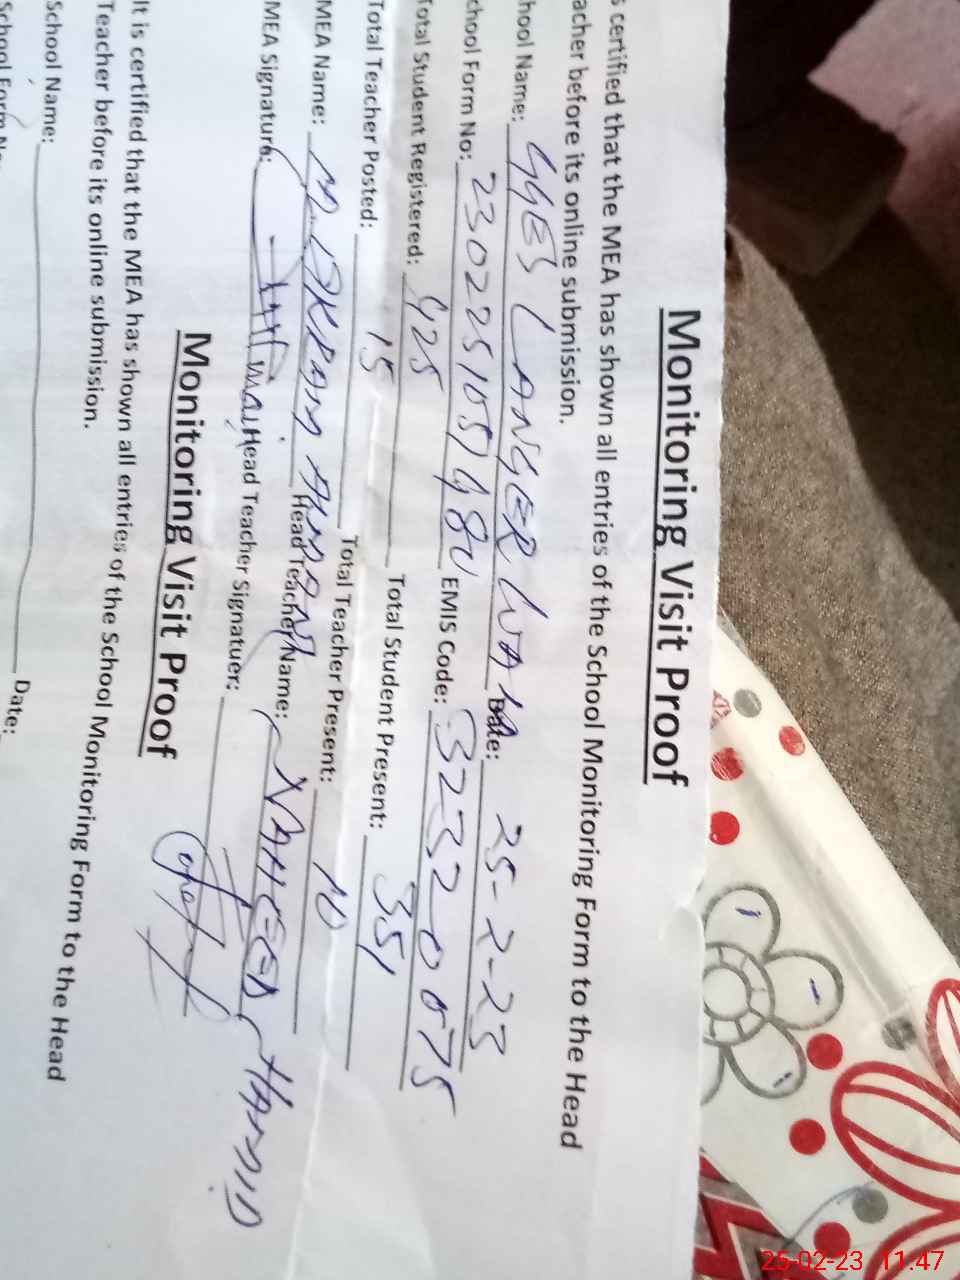 Monitoring Visit Proof
s certified that the MEA has shown all entries of the School Monitoring Form to the Head
acher before its online submission.
hool Name: GGES LANGER WALA Date: 25-2-23
chool Form No: EMIS Code: 32320075
Total Student Registered: 425 Total Student Present: 351
Total Teacher Posted: 15 Total Teacher Present: 10
MEA Name: M. AKRAM Head Teacher Name: NAHEED HAMID
MEA Signature: Head Teacher Signatuer:
Monitoring Visit Proof
It is certified that the MEA has shown all entries of the School Monitoring Form to the Head
Teacher before its online submission.
School Name: Date:
School Form No
25-02-23 11:47